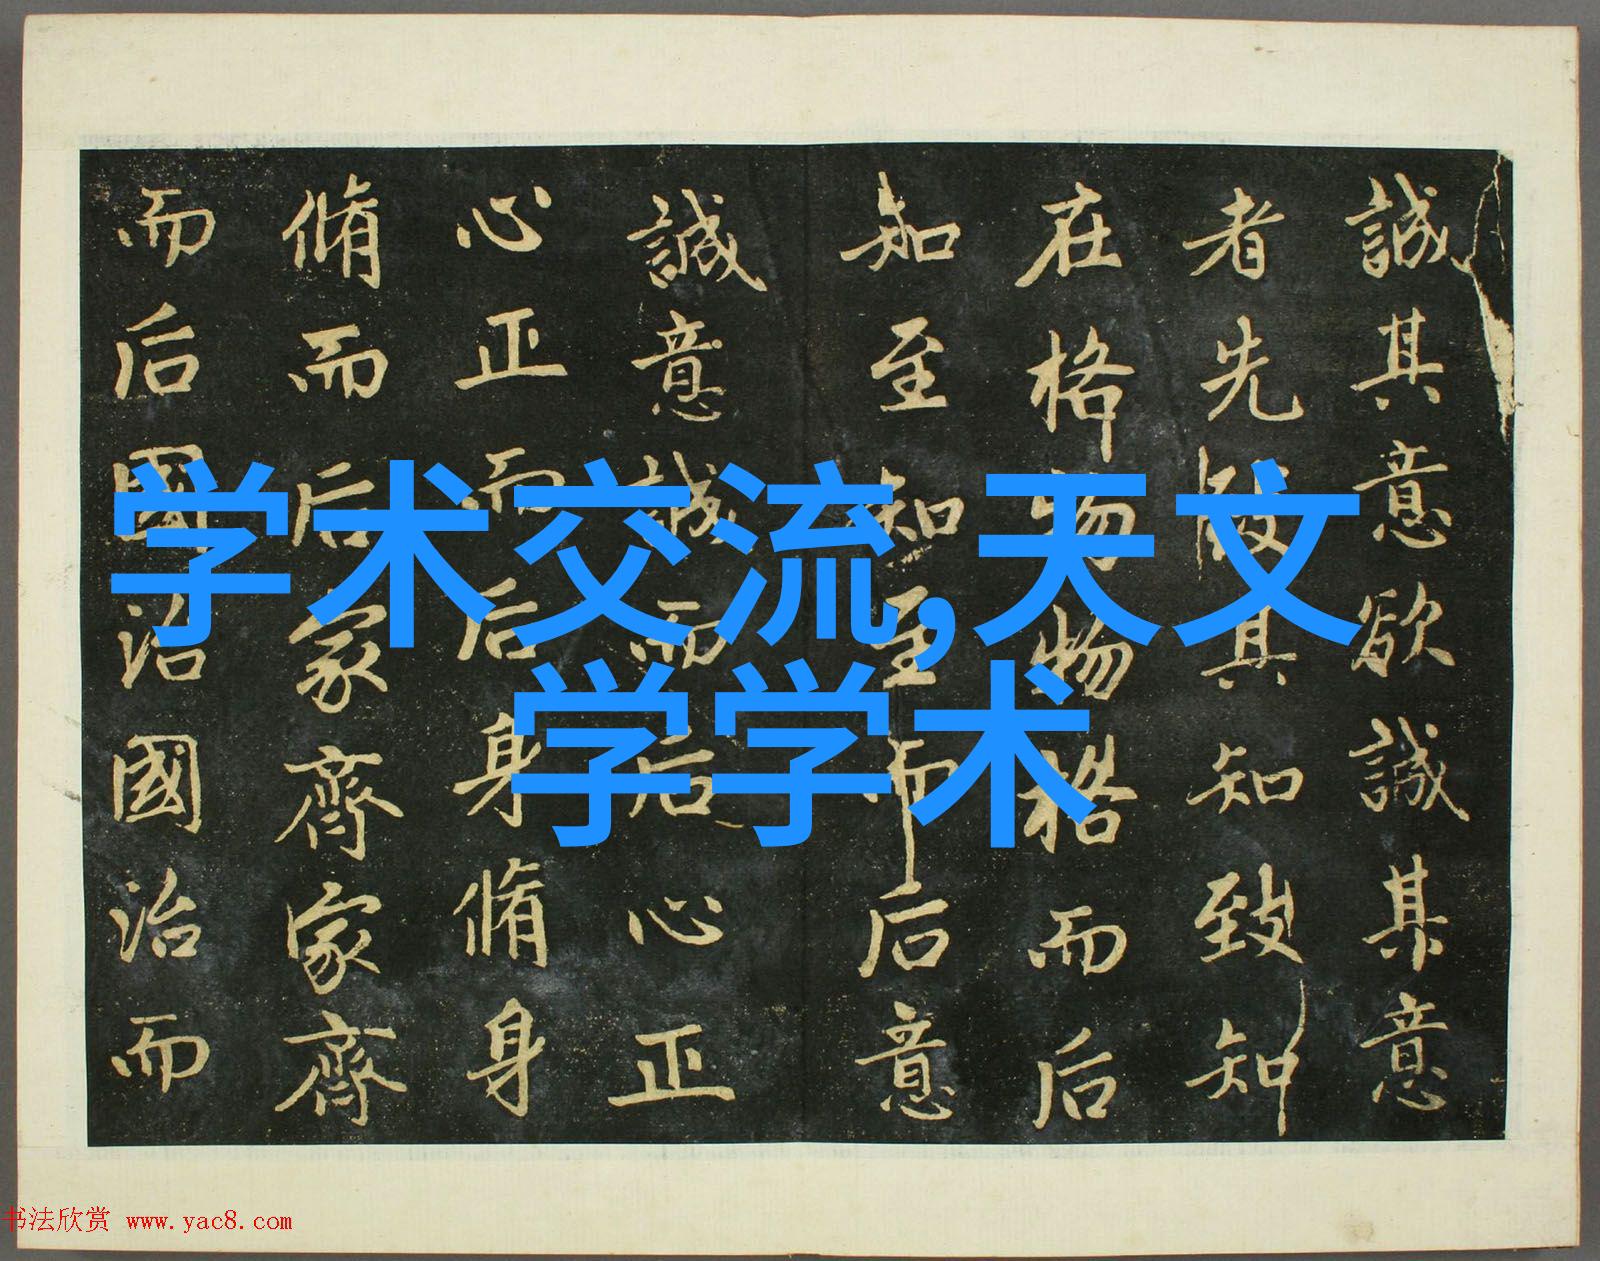 誠其意欲誠其意
者先致其知致知
在格物物格而后
知至知至而后意
誠意誠而后心正
心正而后身脩身
脩而后家齊家齊
而后國治國治而
学术交流,天文
学学术
书法欣赏 www.yac8.com